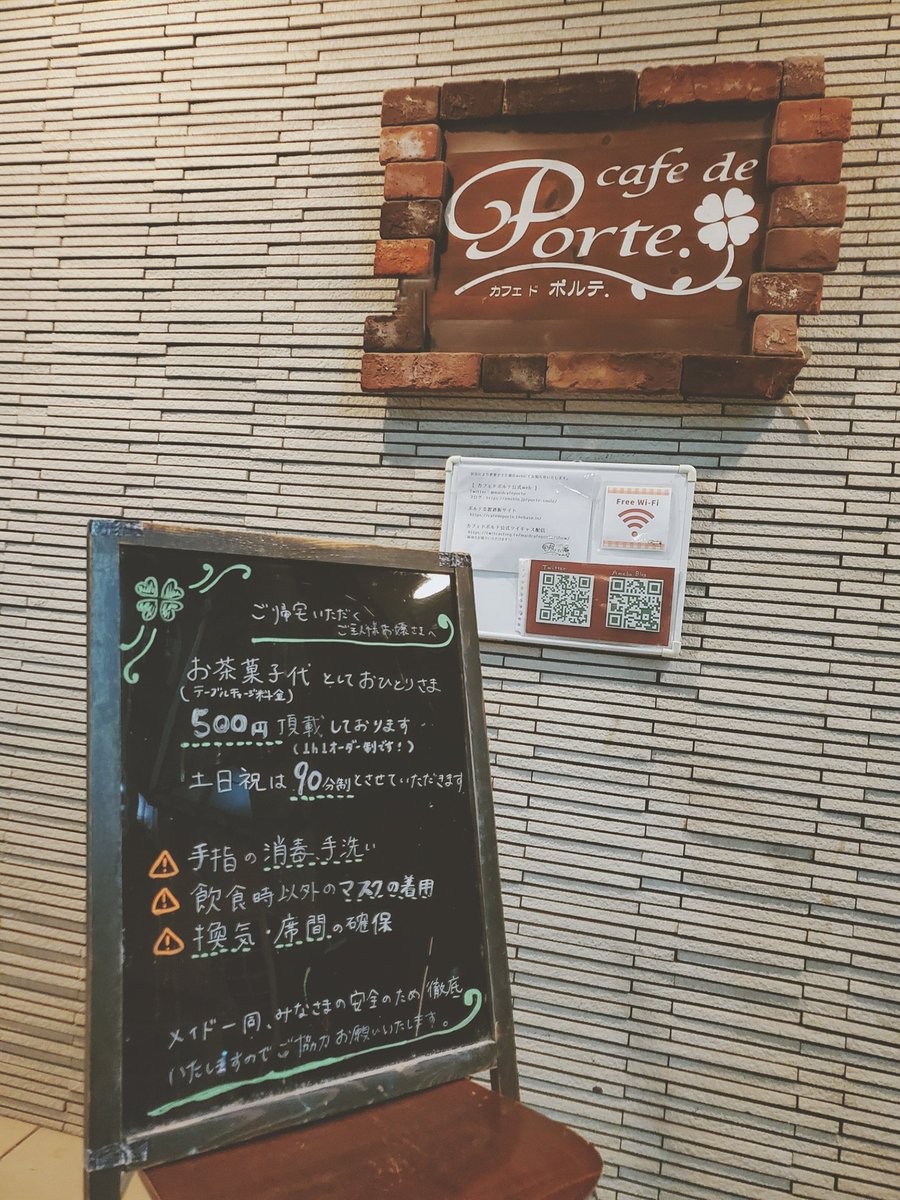 cafe de
Porte.
カフェ ド ポルテ.
【 カフェドポルテ公式web 】
Free Wi-Fi
Twitter
Ameba Blog
ご帰宅いただく
ご主人様お嬢さまへ
お茶菓子代 としておひとりさま
(テーブルチャージ料金)
500円 頂載しております
(1h1オーダー制です！)
土日祝は 90分制とさせていただきます
手指の消毒、手洗い
飲食時以外のマスクの着用
換気・席間の確保
メイド一同、みなさまの安全のため徹底
いたしますのでご協力お願いいたします。